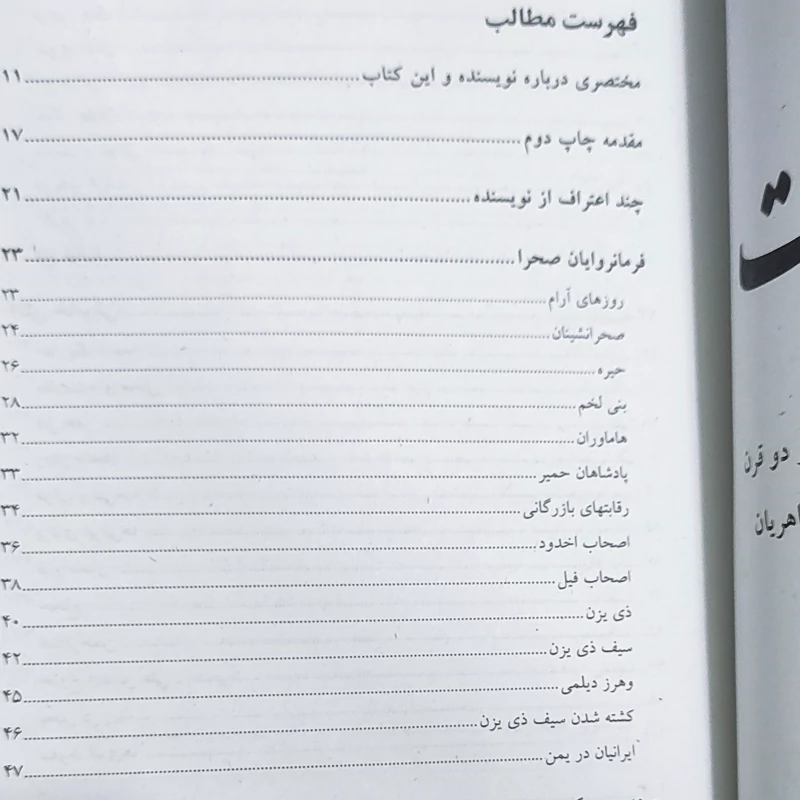 فهرست مطالب
مختصری درباره نویسنده و این کتاب ۱۱
مقدمه چاپ دوم ۱۷
چند اعتراف از نویسنده ۲۱
فرمانروایان صحرا ۲۳
روزهای آرام ۲۳
صحرانشینان ۲۴
حیره ۲۶
بنی لخم ۲۸
هاماوران ۳۲
پادشاهان حمیر ۳۳
رقابتهای بازرگانی ۳۴
اصحاب اخدود ۳۶
اصحاب فیل ۳۸
ذی یزن ۴۰
سیف ذی یزن ۴۲
وهرز دیلمی ۴۵
کشته شدن سیف ذی یزن ۴۶
ایرانیان در یمن ۴۷
دو قرن